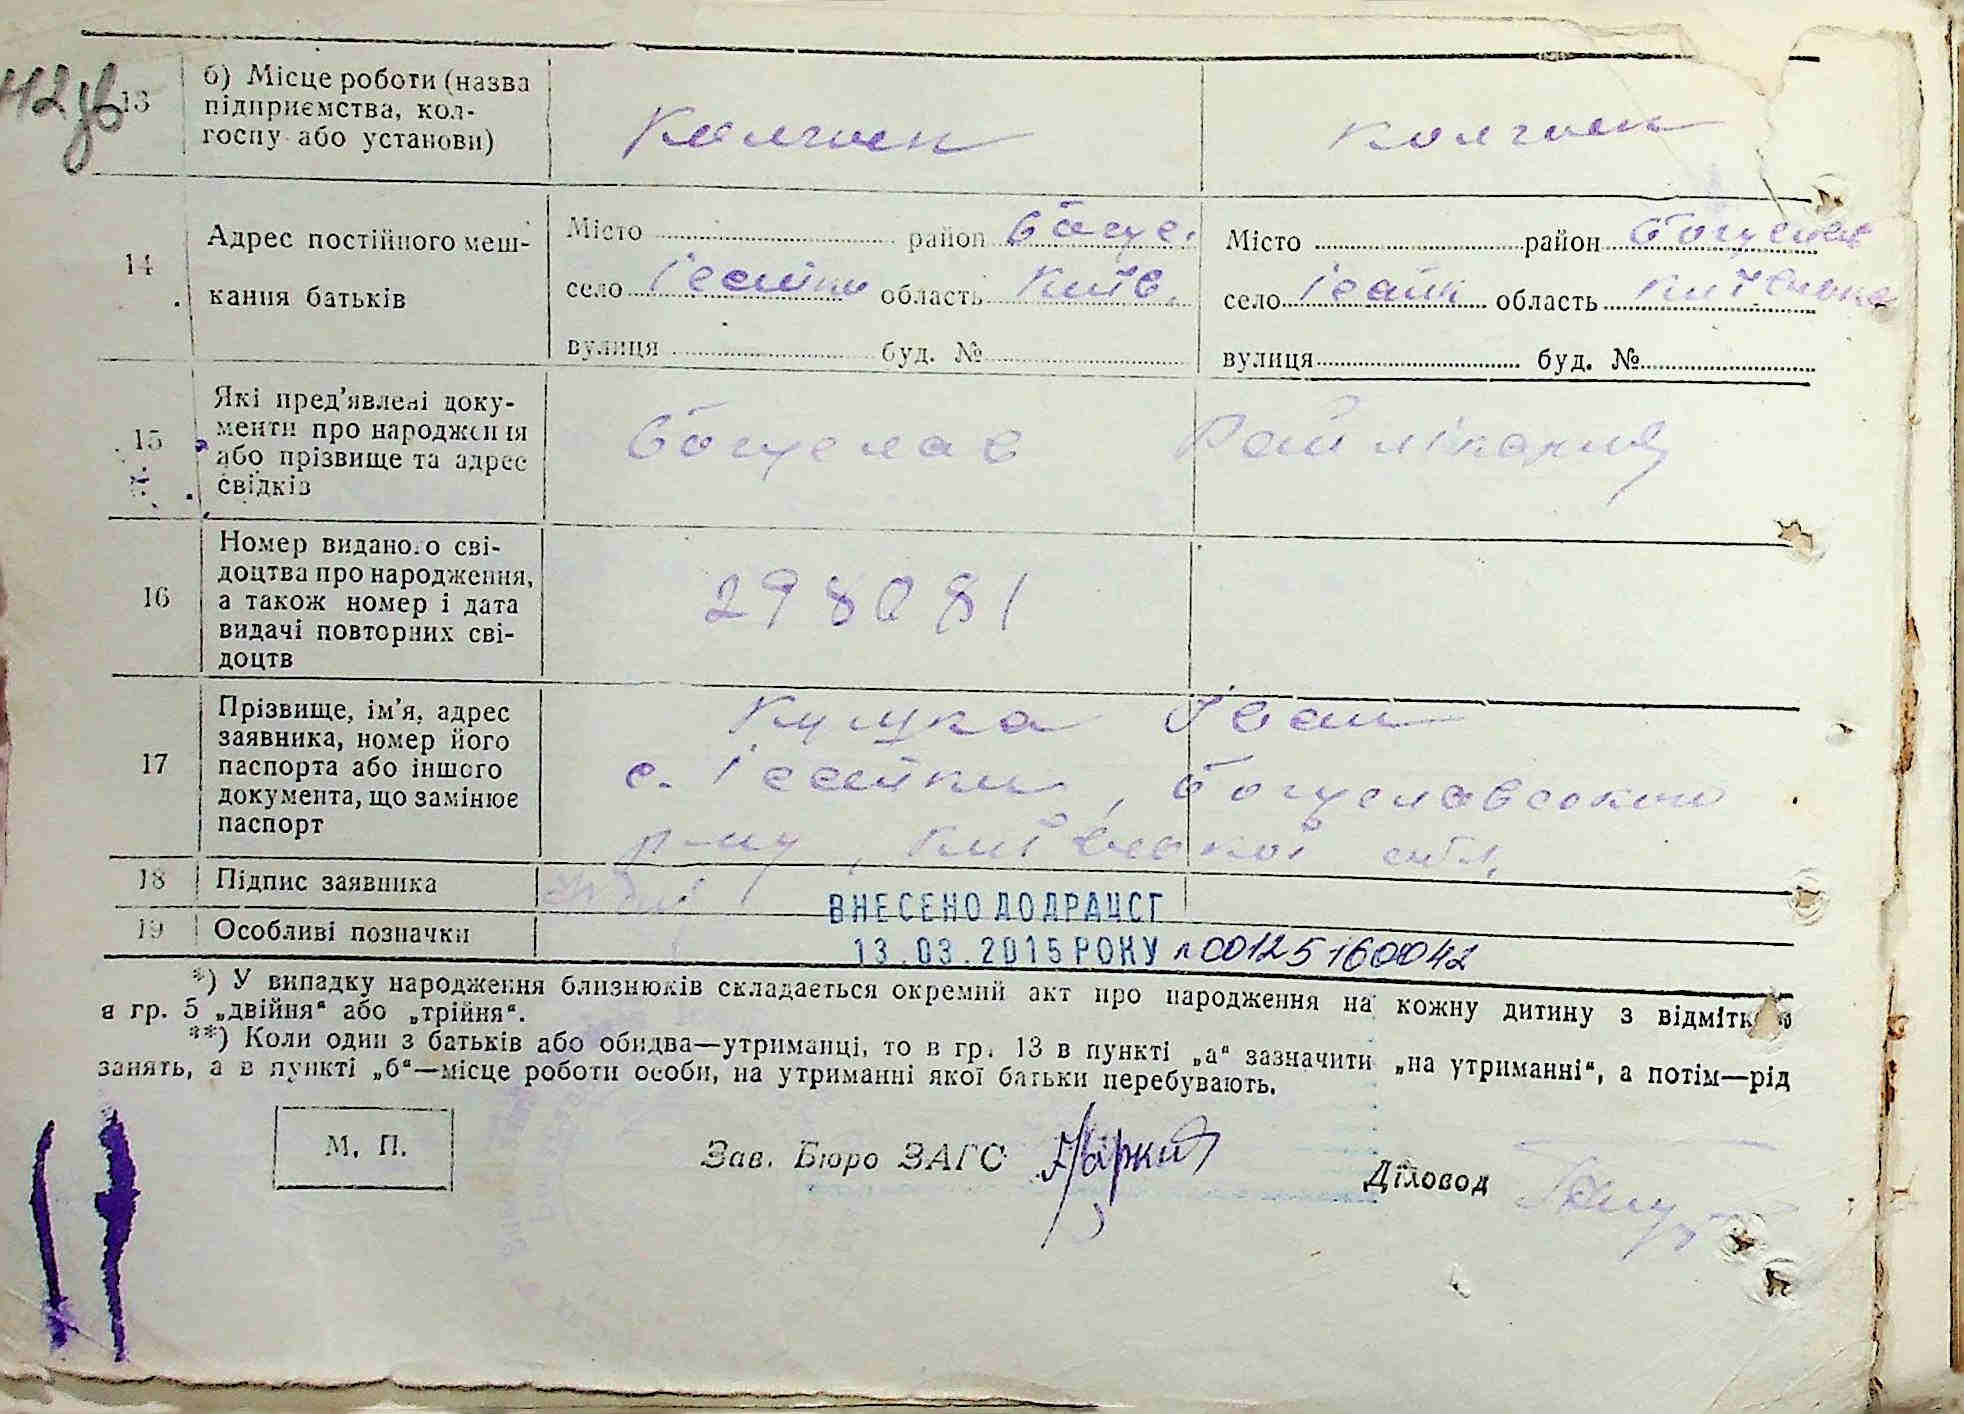 112 зв
13 б) Місце роботи (назва
підприємства, кол-
госпу або установи)
Колгосп колгосп
14 Адрес постійного меш-
кання батьків
Місто район Богус. Місто район Богуслав
село Ісайки область Київ. село Ісайк область Київська
вулиця буд. № вулиця буд. №
15 Які пред'явлені доку-
менти про народження
або прізвище та адрес
свідків
Богуслав Райлікарня
16 Номер виданого сві-
доцтва про народження,
а також номер і дата
видачі повторних сві-
доцтв
298081
17 Прізвище, ім'я, адрес
заявника, номер його
паспорта або іншого
документа, що замінює
паспорт
Іван
с. Ісайки, Богуславського
р-ну, Київської обл.
18 Підпис заявника
19 Особливі позначки
ВНЕСЕНО ДО ДРАЦСГ
13.03.2015 РОКУ №00125160042
*) У випадку народження близнюків складається окремий акт про народження на кожну дитину з відміткою
в гр. 5 „двійня“ або „трійня“.
**) Коли один з батьків або обидва—утриманці, то в гр. 13 в пункті „а“ зазначити „на утриманні“, а потім—рід
занять, а в пункті „б“—місце роботи особи, на утриманні якої батьки перебувають.
М. П. Зав. Бюро ЗАГС Діловод